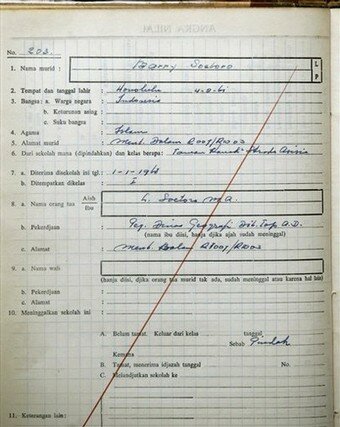 ANGKA NILAI
No. 203.
1. Nama murid : Barry Soetoro L P
2. Tempat dan tanggal lahir : Honolulu 4-8-61
3. Bangsa : a. Warga negara : Indonesia
b. Keturunan asing :
c. Suku bangsa :
4. Agama : Islam
5. Alamat murid : Ment. Dalam R007/R003
6. Dari sekolah mana (dipindahkan) dan kelas berapa: Taman Kanak2 Strada Asisia
7. a. Diterima disekolah ini tgl.: 1-1-1968
b. Ditempatkan dikelas : I
8. a. Nama orang tua Ajah Ibu : L. Soetoro M.A.
b. Pekerdjaan : Peg. Dinas Geografi Dit. Top. A.D.
(nama ibu diisi, hanya djika ajah sudah meninggal)
c. Alamat : Ment. Dalam R007/R003
9. a. Nama wali :
(hanja diisi, djika orang tua murid tak ada, sudah meninggal atau karena hal lain)
b. Pekerdjaan :
c. Alamat :
10. Meninggalkan sekolah ini :
A. Belum tamat. Keluar dari kelas tanggal
Sebab Pindah
Kemana
B. Tamat, menerima idjazah tanggal No.
C. Melandjutkan sekolah ke
11. Keterangan lain :